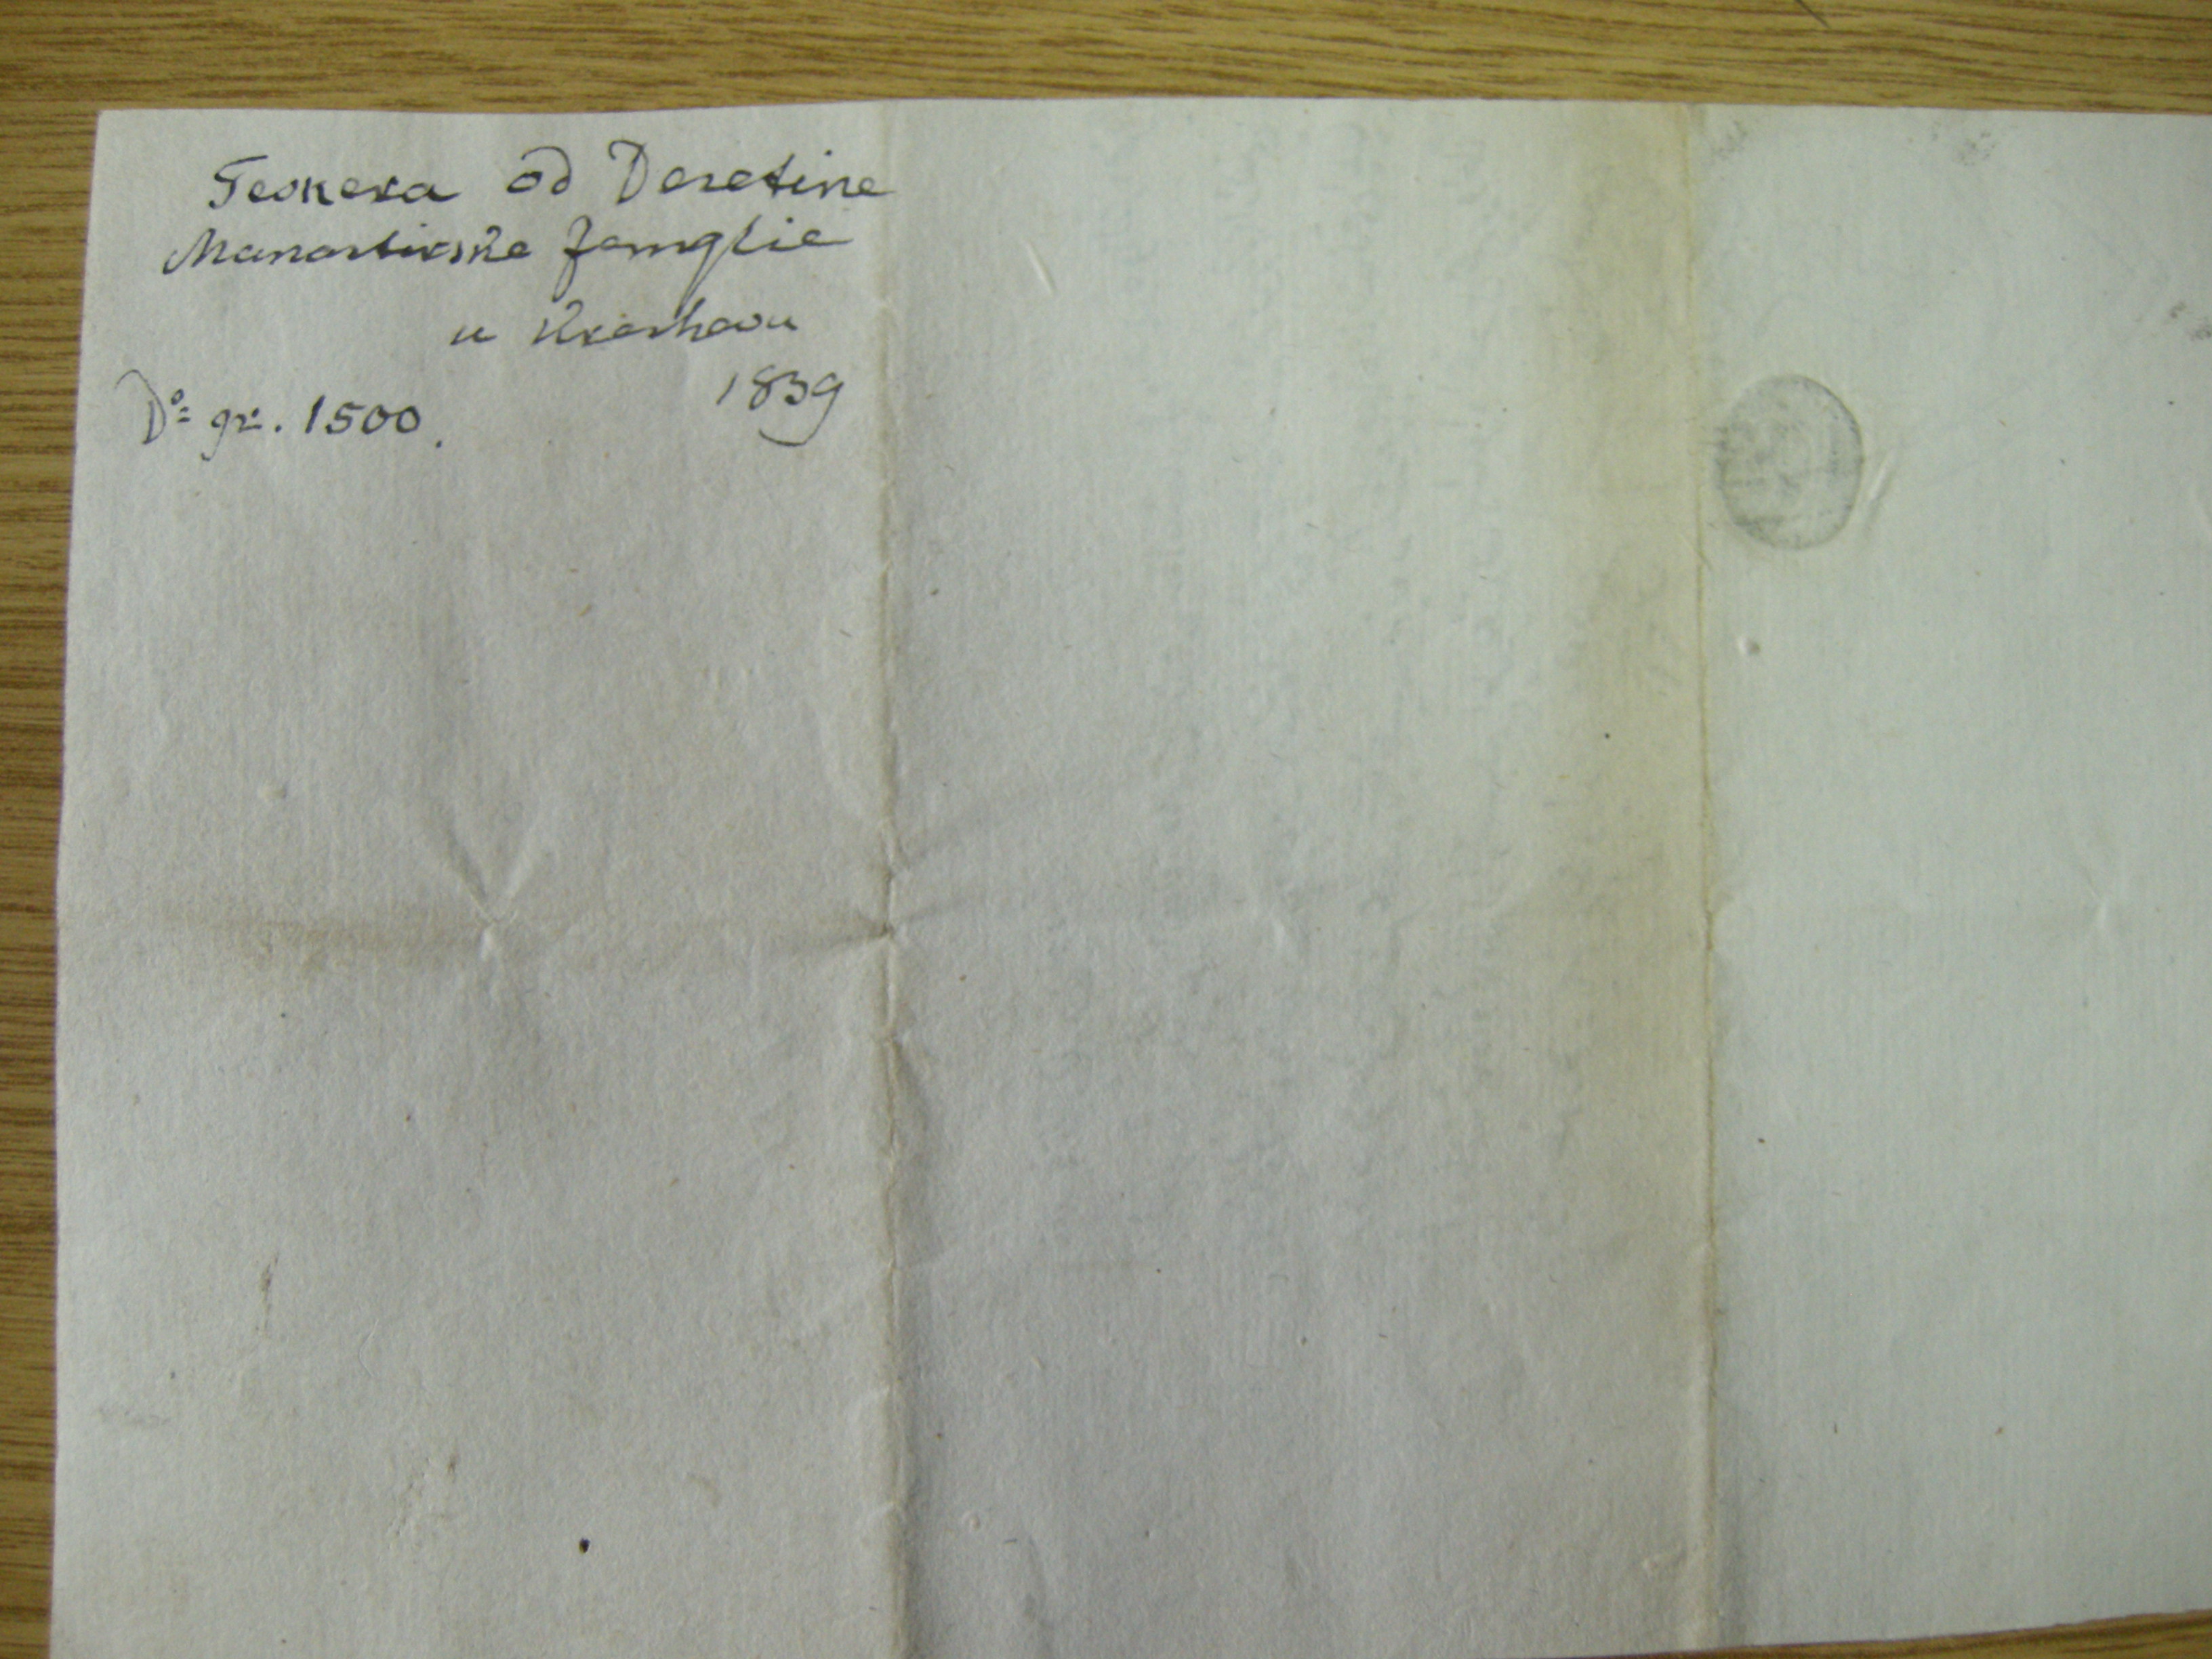 Teskera od Deretine
Manastirske zemglie
u Kreshevu
1839
D.º gr. 1500.